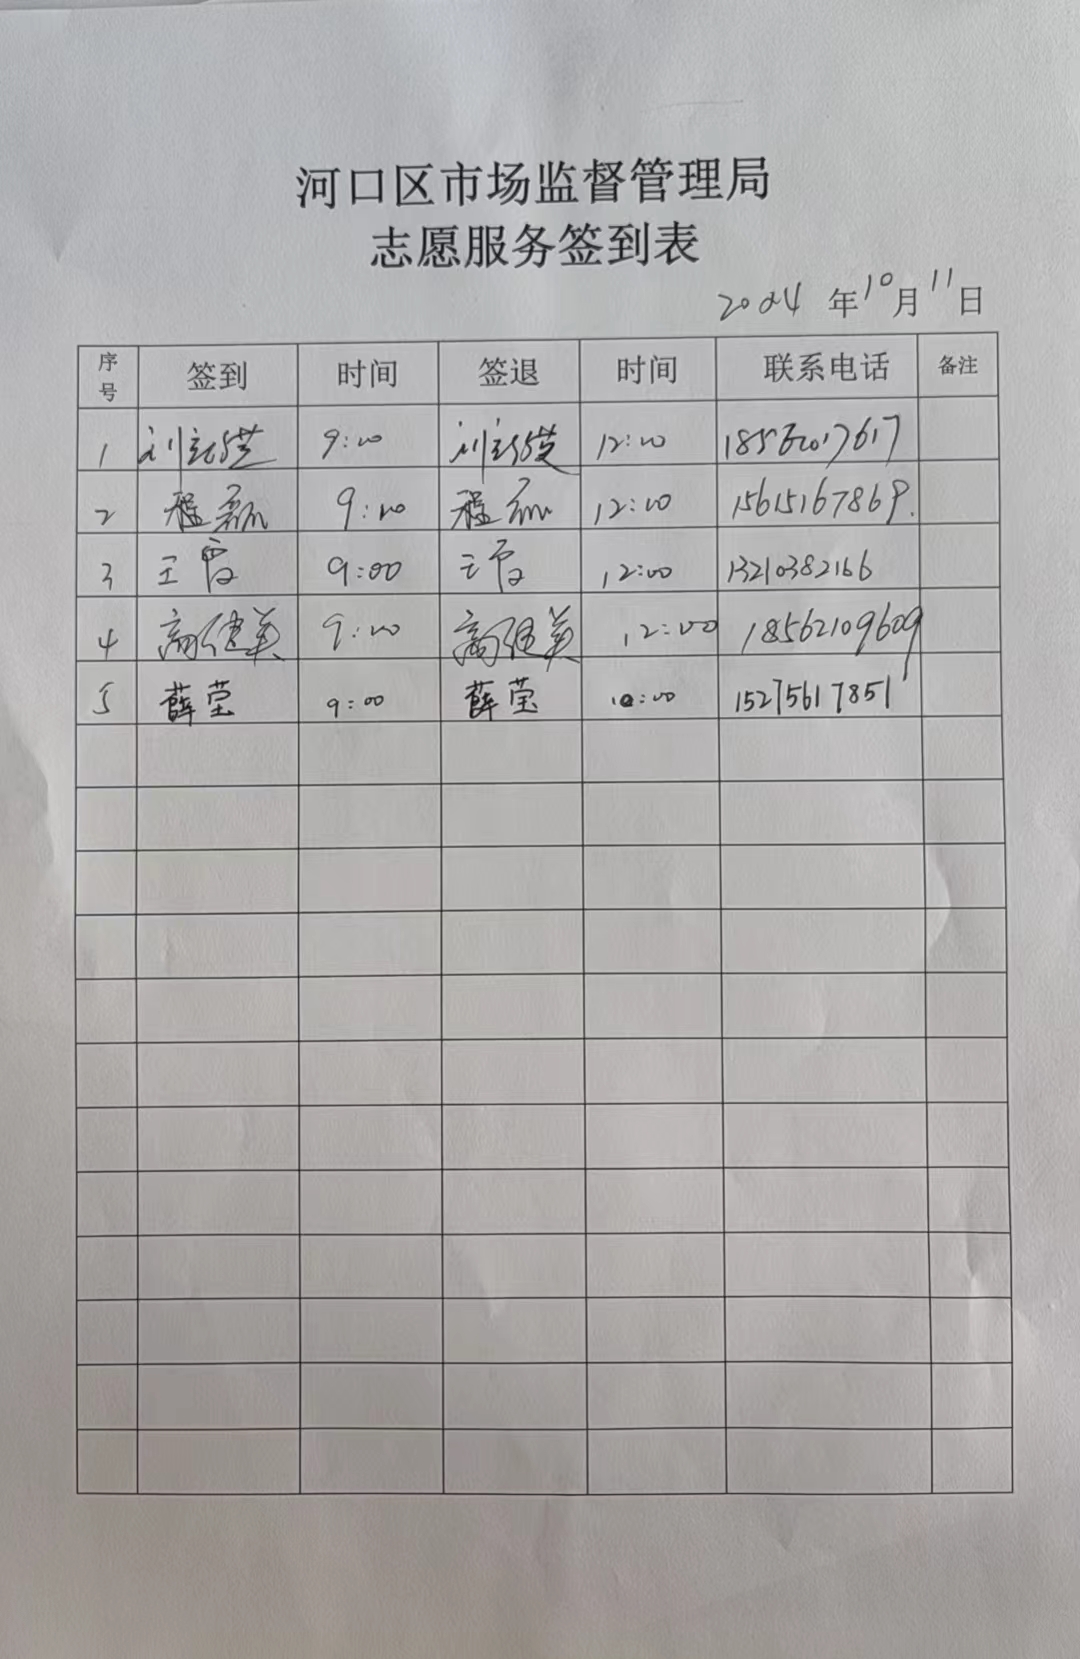 河口区市场监督管理局
志愿服务签到表
2024 年 10 月 11 日
序号 签到 时间 签退 时间 联系电话 备注
1 9:00 12:00
2 程磊 9:00 程磊 12:00 15615167869.
3 王霞 9:00 王霞 12:00 13210382166
4 高健美 9:00 高健美 12:00 18562109609
5 薛莹 9:00 薛莹 12:00 15275617851